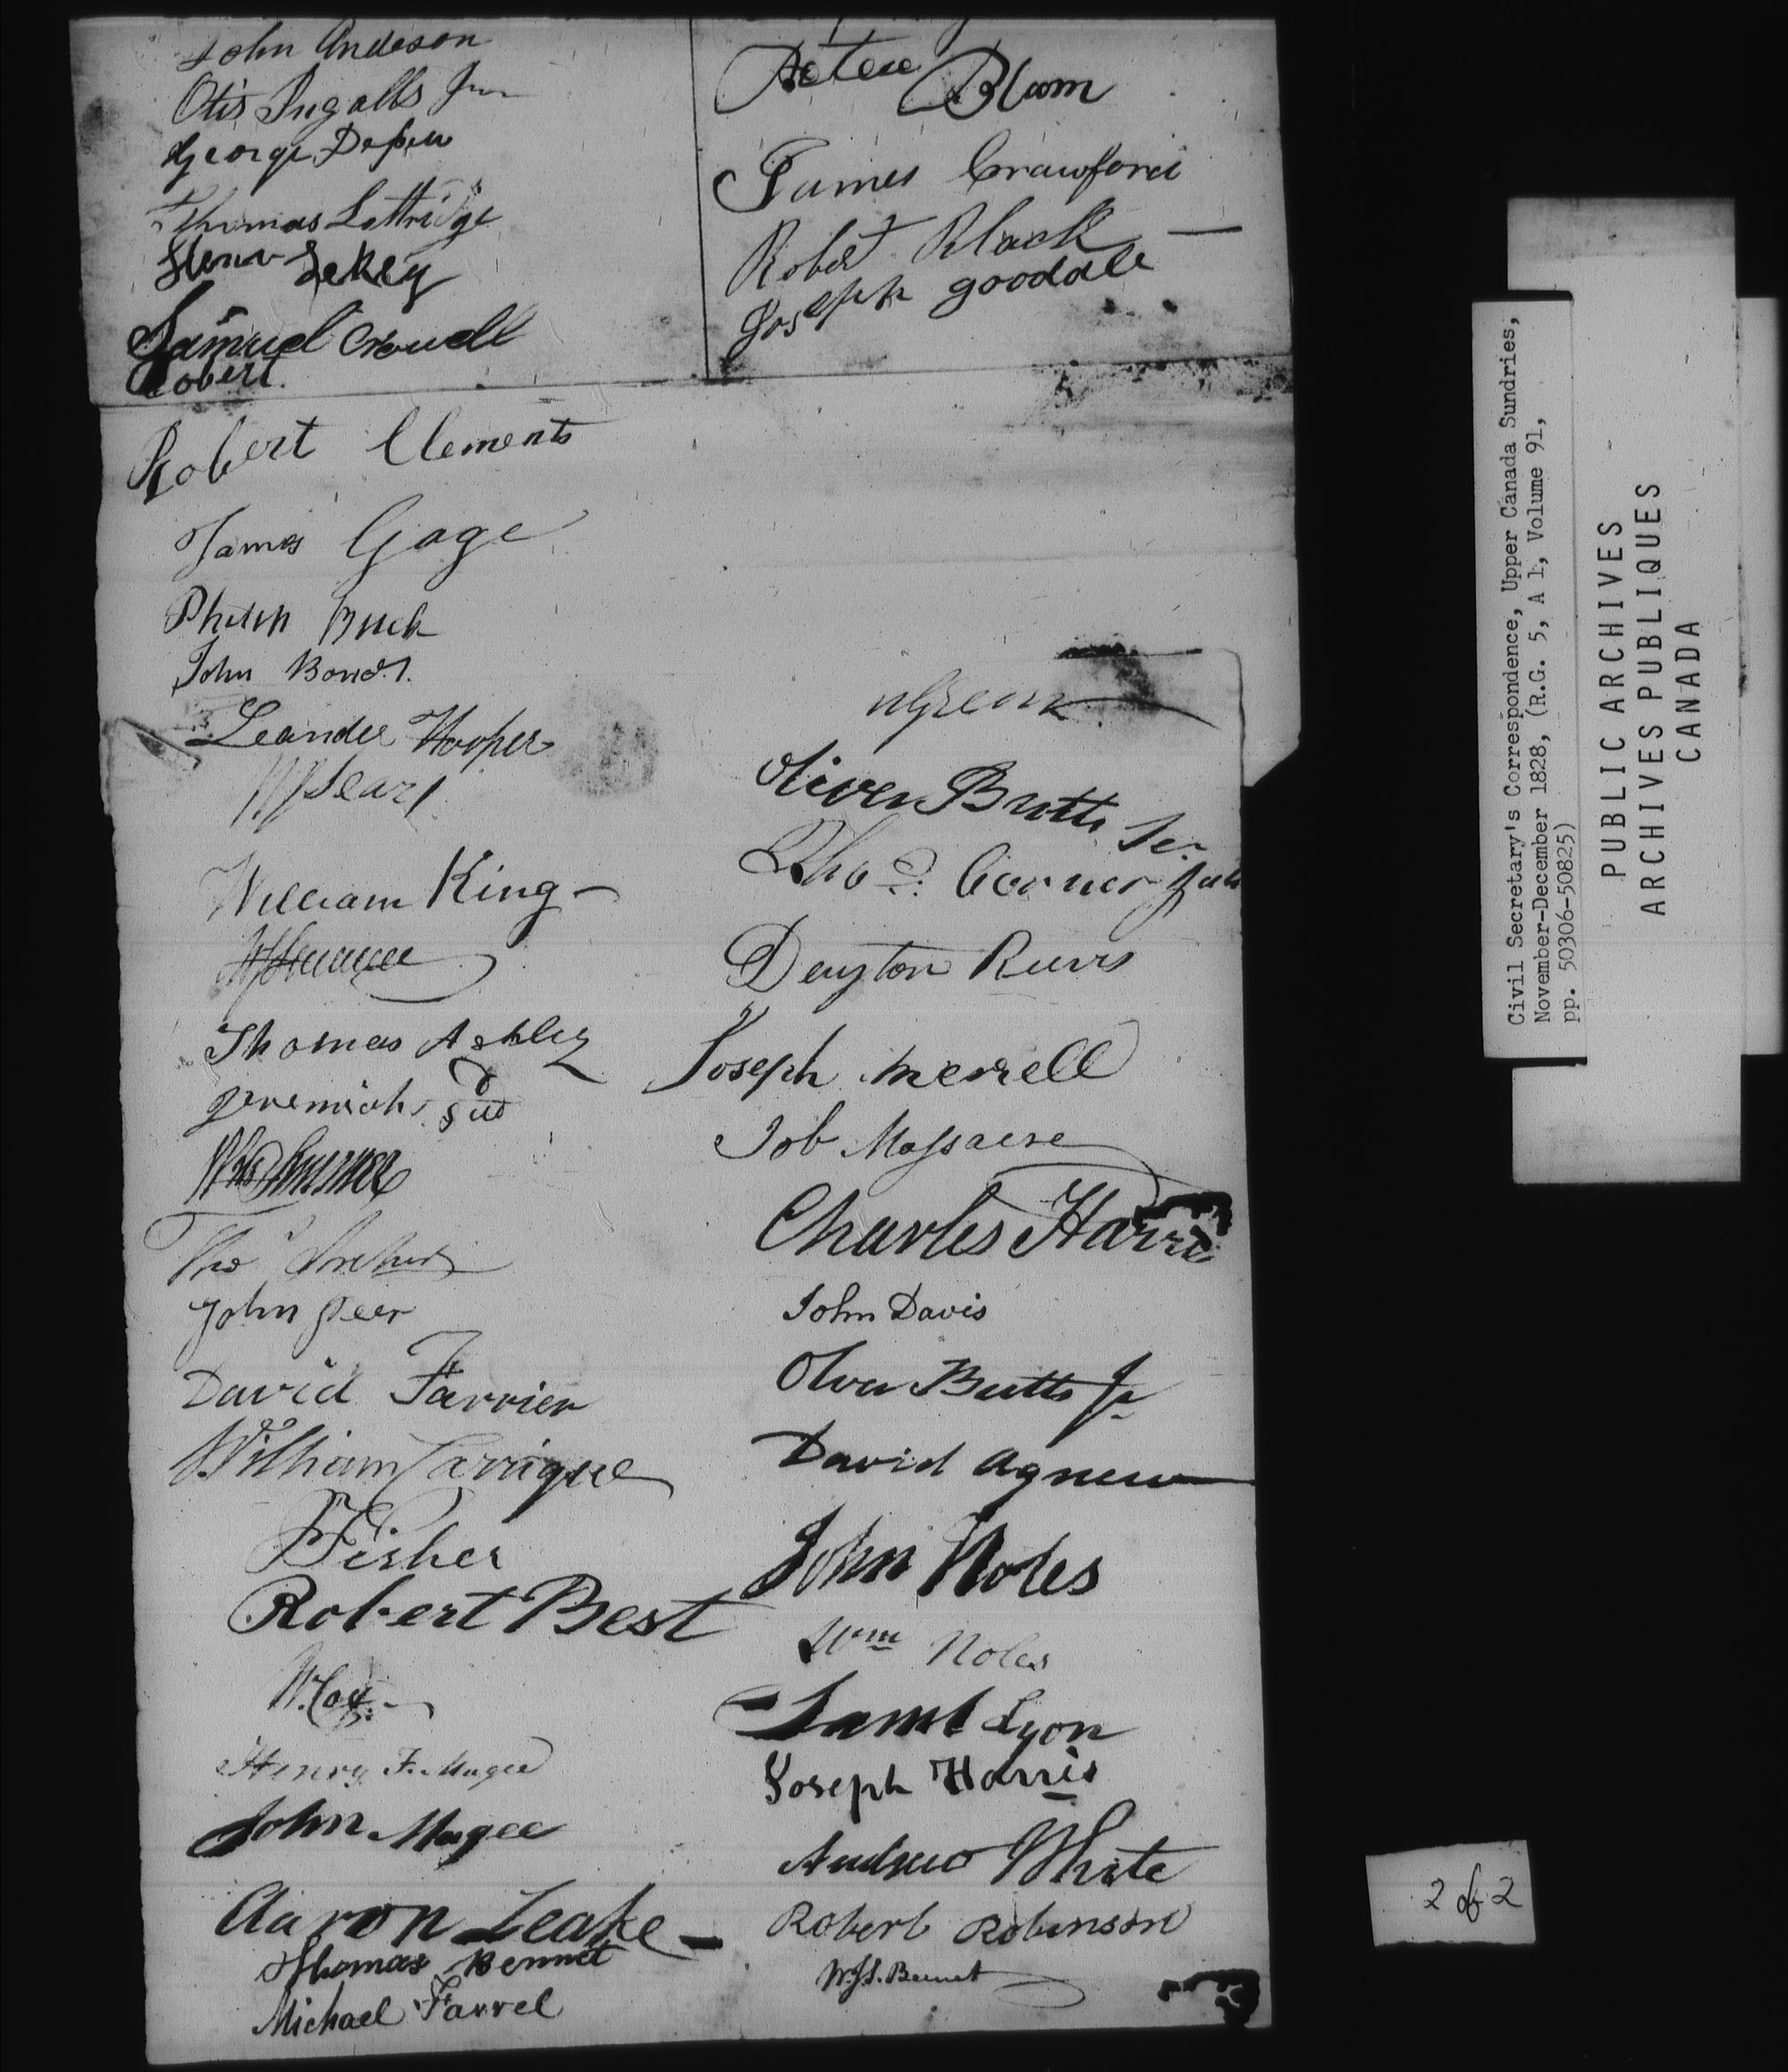 John Andeson
Otis Ingalls Jun
George Depew
Thomas Lottridge
Henry Lekey
Samuel Crowell
Robert
Robert Clements
James Gage
Philip Buck
John Bond
Leander Hooper
William King
Thomas Ashley
Jeremiah
Tho
John Peer
David Farrier
William Carrigue
Fisher
Robert Best
W. Coy
Henry F. Magee
John Magee
Aaron Leake
Thomas Bennet
Michael Farrel
Peter Blum
James Crawford
Robert Black
Joseph goodale
Oliver Butts Ser
Thos Corner Jun
Deyton Reeves
Joseph Merrell
Job Massacre
Charles Harri
John Davis
Olver Butts Jr
David Agnew
John Noles
Wm Noles
Saml Lyon
Joseph Harris
Andrew White
Robert Robinson
W. Bennet
Civil Secretary's Correspondence, Upper Canada Sundries,
November-December 1828, (R.G. 5, A 1, Volume 91,
pp. 50306-50825)
PUBLIC ARCHIVES
ARCHIVES PUBLIQUES
CANADA
2 of 2